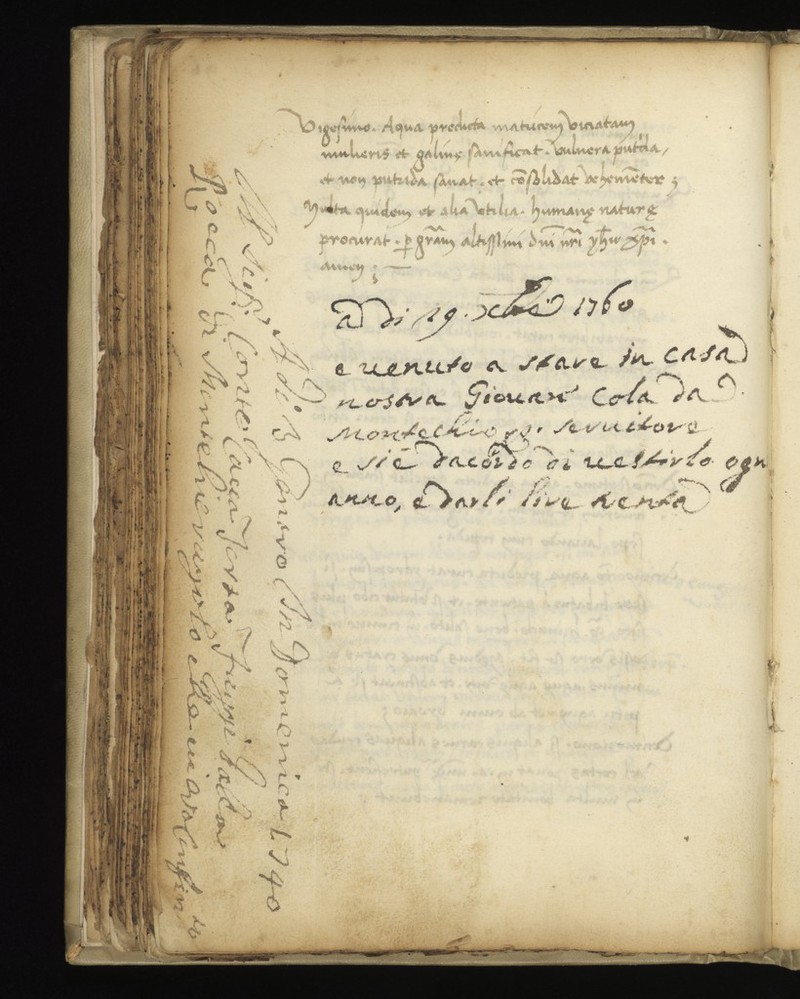 Vigesimo. Aqua predicta matricem viciatam
mulieris et galinę sanificat. vulnera putrida,
et non putrida sanat. et cōsolidat vehemēter;
Multa quidem et alia vtilia. humanę naturę
procurat. ꝑ gr̄am altissimi dn̄i nr̄i yh̄u xp̄i.
amen;
a di 19. xbre 1760
e uenuto a stare in casa
nostra Giouan Cola da
Montechio p. seruitore
e si è dacordo di uestirlo ogn
anno, e darli lire trenta
A di 3 Genaro In Domenica 1740
Il Conte
Rocca di